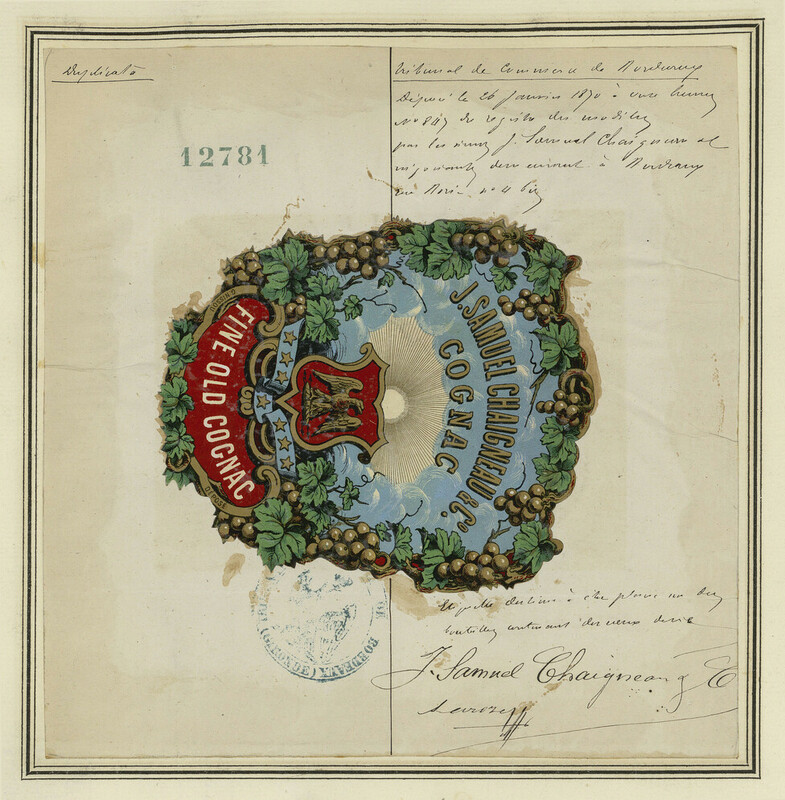 Duplicata
12781
Tribunal de Commerce de Bordeaux
Déposé le 26 Janvier 1870 à onze heures
du registre des modèles
par les sieurs J. Samuel Chaigneau et
négociants demeurant à Bordeaux
J. SAMUEL CHAIGNEAU & Co.
COGNAC
FINE OLD COGNAC
Etiquette destinée à être placée sur des
bouteilles contenant des eaux de vie
J. Samuel Chaigneau & C
BORDEAUX (GIRONDE)